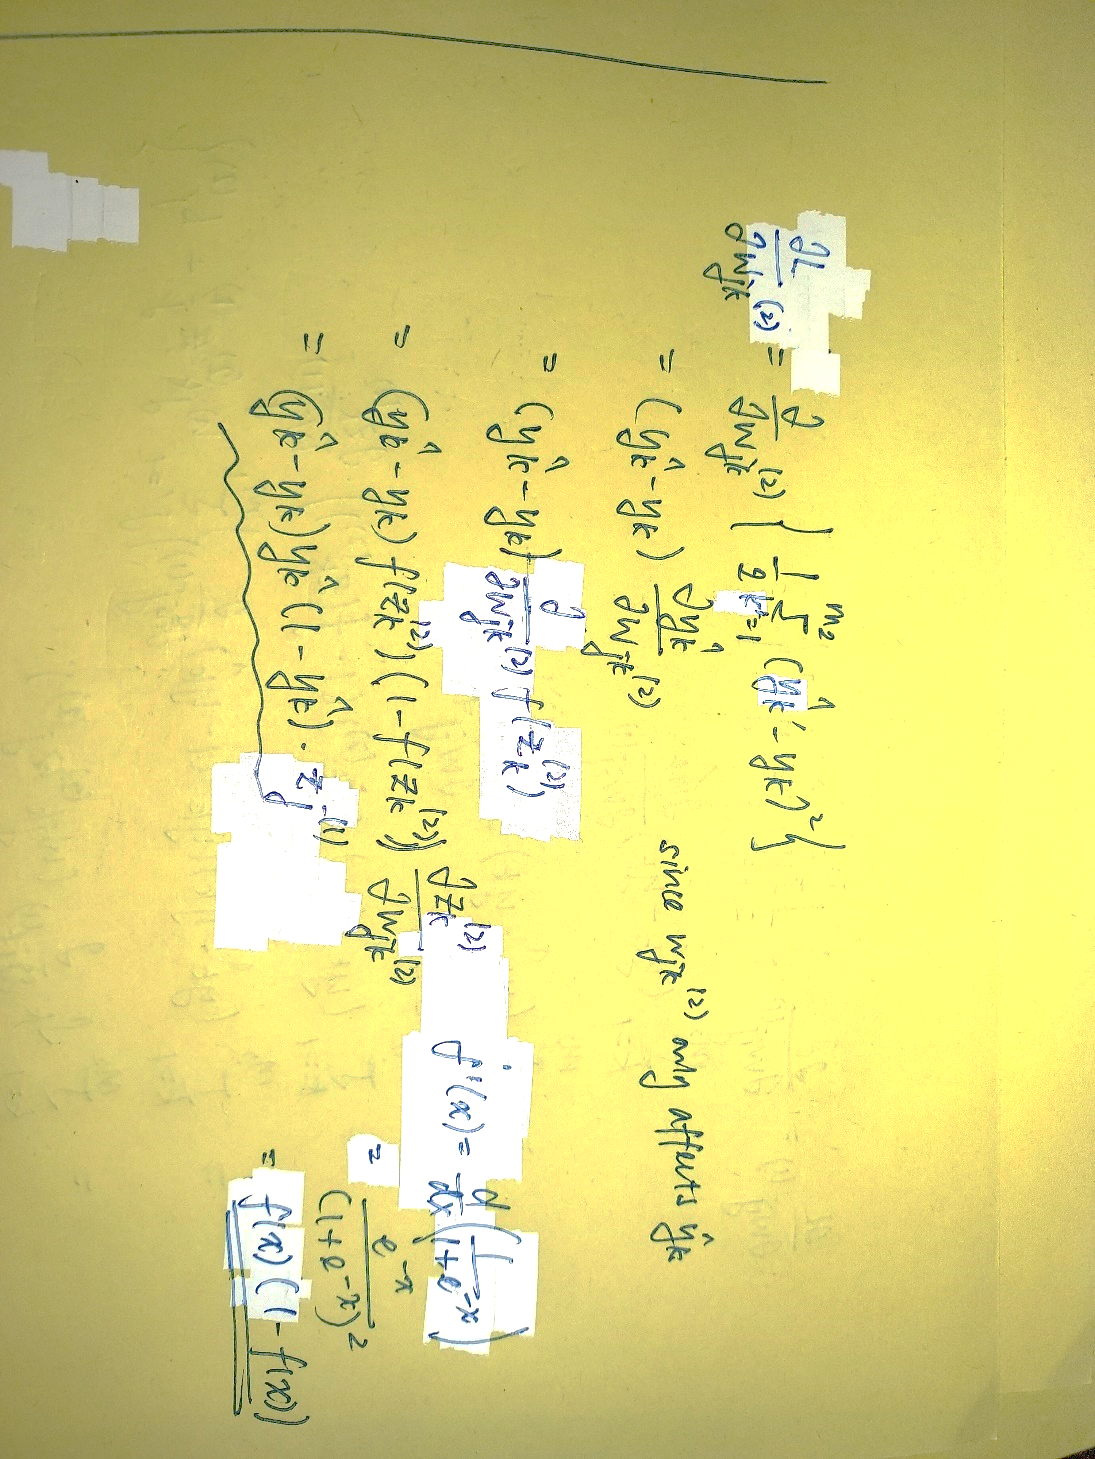 ∂L/∂w_jk^(2) = ∂/∂w_jk^(2) { 1/2 Σ_{k'=1}^{m_2} (ŷ_k' - y_k')^2 }
= (ŷ_k - y_k) ∂ŷ_k/∂w_jk^(2) since w_jk^(2) only affects ŷ_k
= (ŷ_k - y_k) ∂/∂w_jk^(2) f(z_k^(2))
= (ŷ_k - y_k) f(z_k^(2)) (1 - f(z_k^(2))) ∂z_k^(2)/∂w_jk^(2)
= (ŷ_k - y_k) ŷ_k (1 - ŷ_k) · z_j^(1)
f'(x) = d/dx (1/(1+e^-x))
= e^-x/(1+e^-x)^2
= f(x) (1 - f(x))